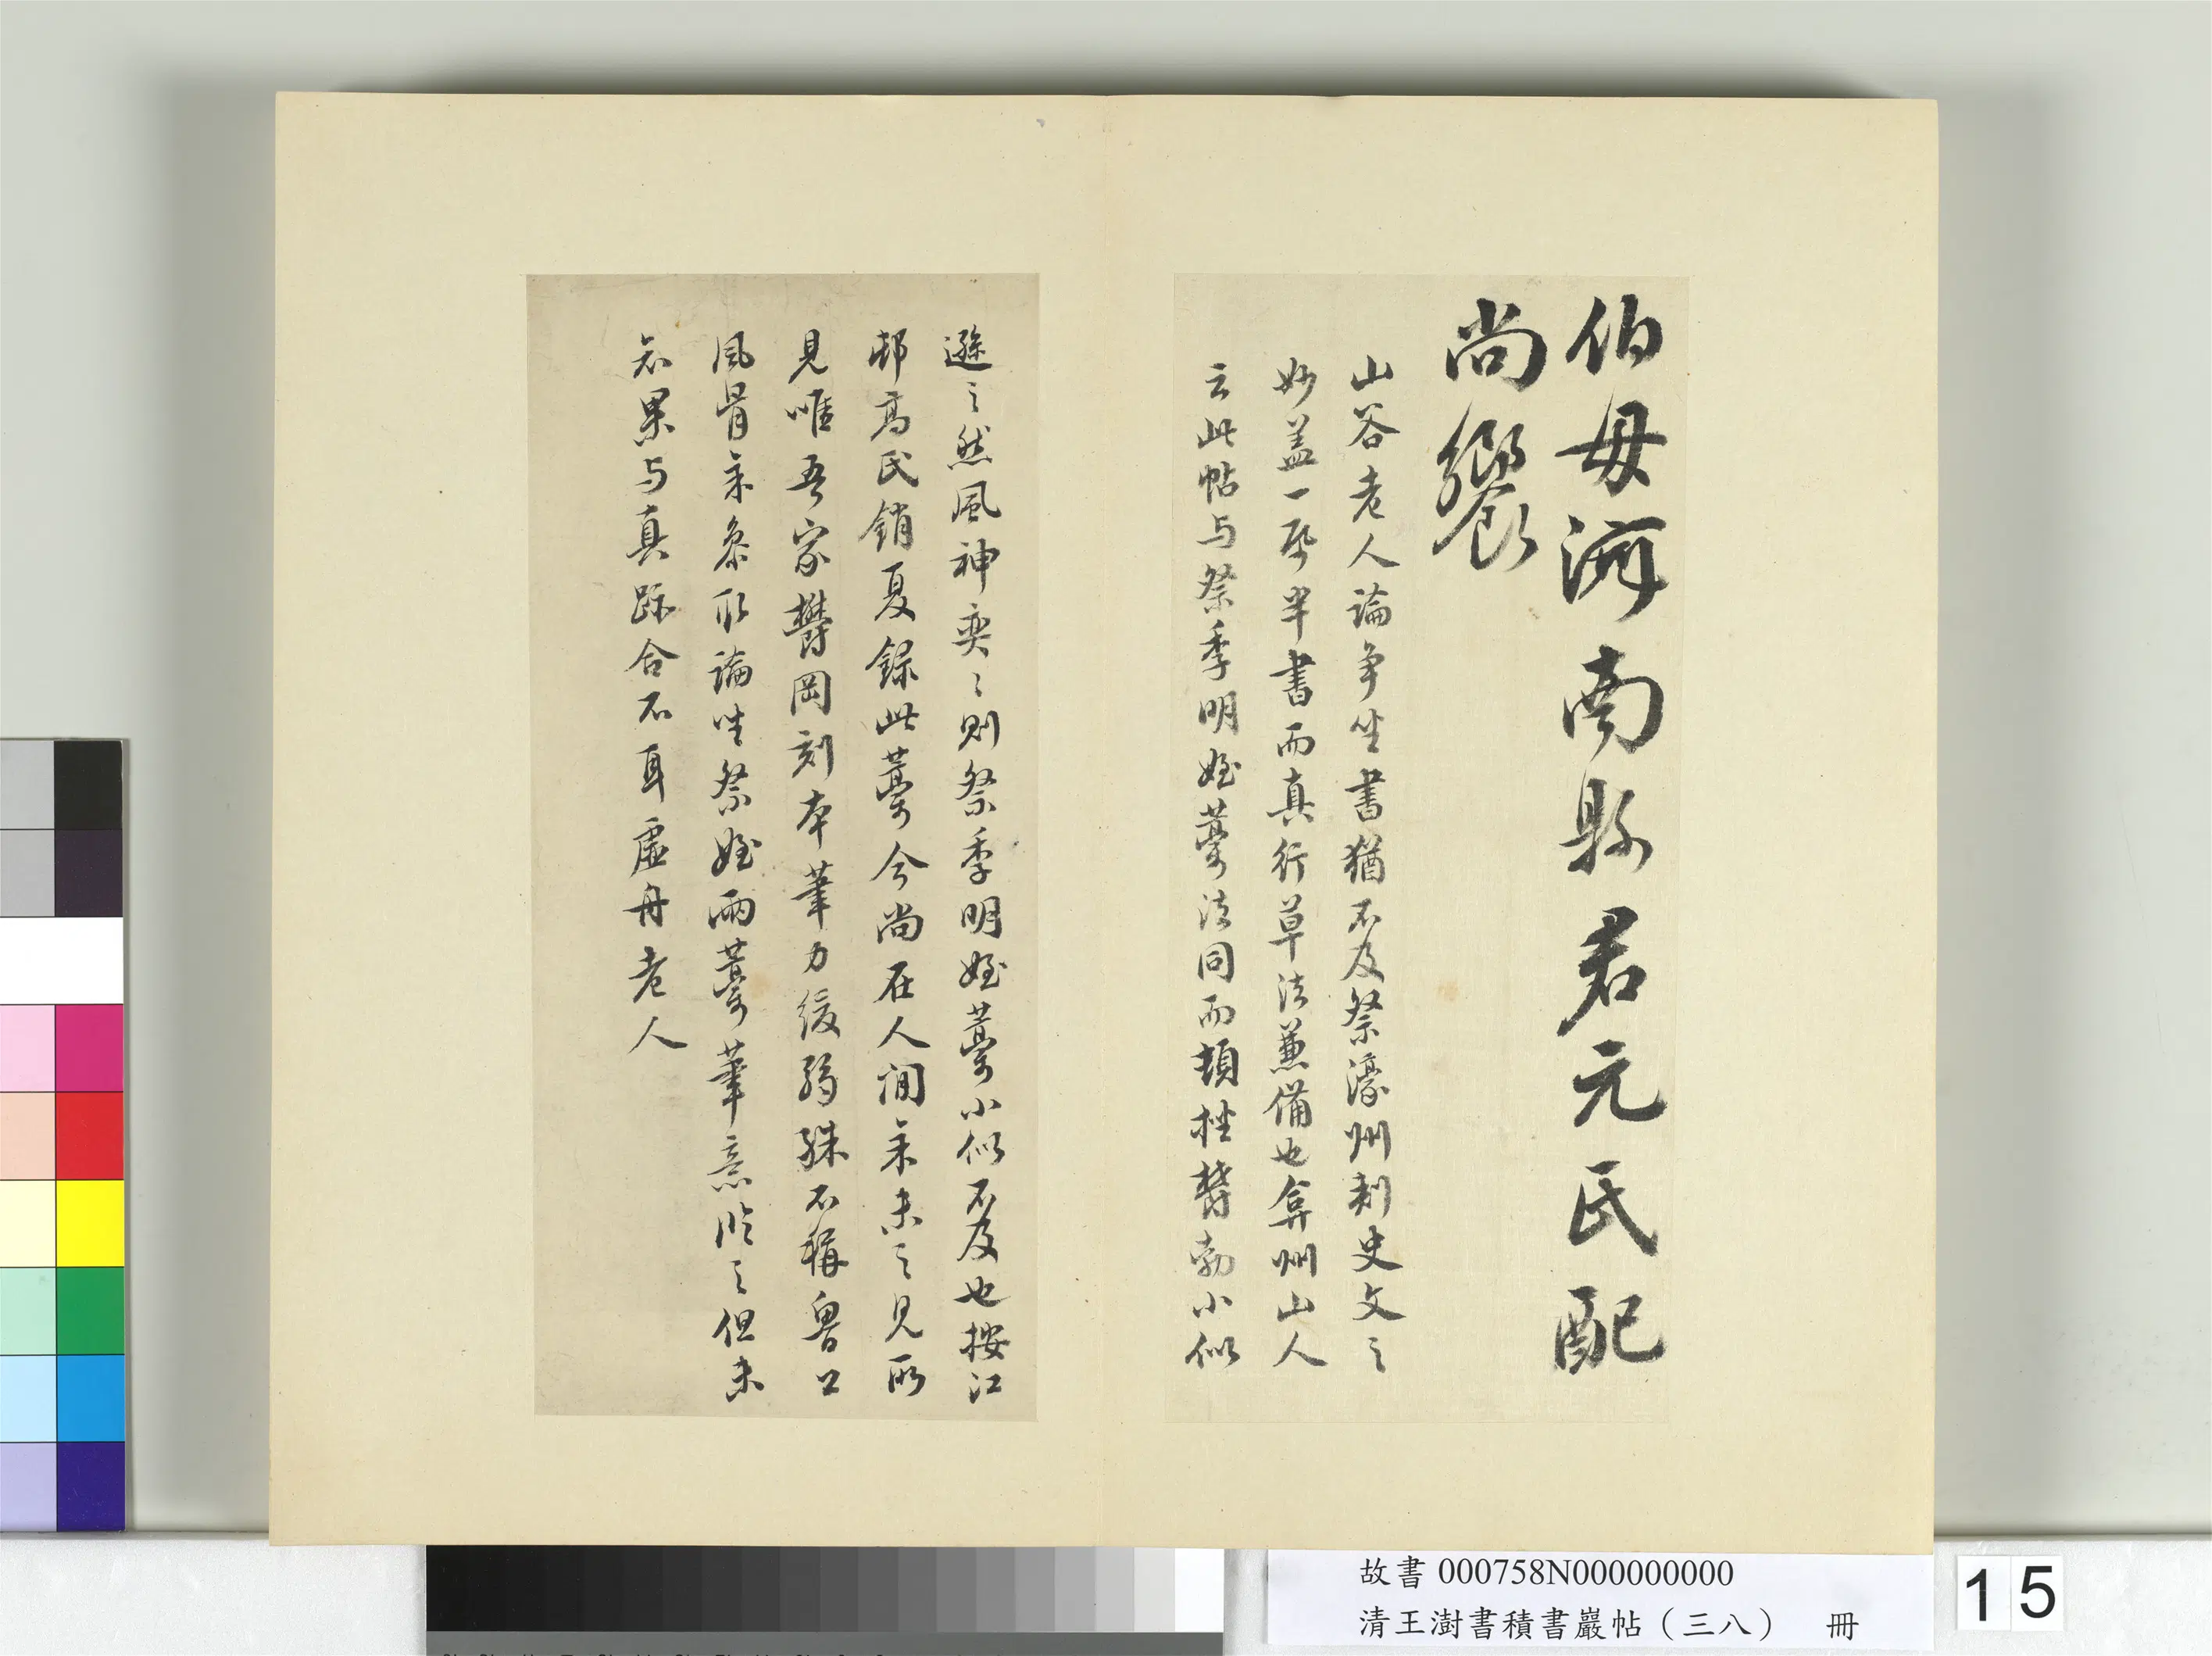 伯母河南縣君元氏配
尚饗
山谷老人論争坐書猶不及祭濠州刺史文之
妙盖一紙半書而真行草法兼備也弇州山人
云此帖与祭季明姪藳法同而頓挫鬱勃小似
遜之然風神奕〻則祭季明姪藳小似不及也按江
邨高氏銷夏録此藳今尚在人間余未之見所
見唯吾家鬱岡刻本筆力緩弱殊不稱魯公
風骨余叅取論坐祭姪兩藳筆意臨之但未
知果与真跡合不耳虛舟老人
故書 000758N000000000
清王澍書積書巖帖（三八） 冊
15